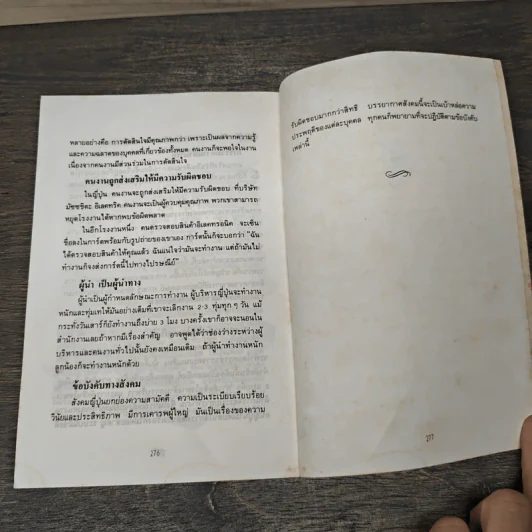 หลายอย่างคือ การตัดสินใจมีคุณภาพกว่า เพราะเป็นผลจากความรู้
และความฉลาดของบุคคลที่เกี่ยวข้องทั้งหมด คนงานก็จะพอใจในงาน
เนื่องจากคนงานมีส่วนร่วมในการตัดสินใจ
คนงานถูกส่งเสริมให้มีความรับผิดชอบ
ในญี่ปุ่น คนงานจะถูกส่งเสริมให้มีความรับผิดชอบ ที่บริษัท
มัซซชิตะ อิเลคทริค คนงานจะเป็นผู้ควบคุมคุณภาพ พวกเขาสามารถ
หยุดโรงงานได้หากพบข้อผิดพลาด
ในอีกโรงงานหนึ่ง คนตรวจสอบสินค้าอิเลคทรอนิค จะเซ็น
ชื่อลงในการ์ดพร้อมกับรูปถ่ายของเขาเอง การ์ดนั้นก็จะบอกว่า "ฉัน
ได้ตรวจสอบสินค้าให้คุณแล้ว ฉันแน่ใจว่ามันจะทำงาน แต่ถ้ามันไม่
ทำงานก็จงส่งการ์ดนี้ไปทางไปรษณีย์"
ผู้นำ เป็นผู้นำทาง
ผู้นำเป็นผู้กำหนดลักษณะการทำงาน ผู้บริหารญี่ปุ่นจะทำงาน
หนักและทุ่มเทให้มันอย่างเต็มที่เขาจะเลิกงาน 2-3 ทุ่มทุก ๆ วัน แม้
กระทั่งวันเสาร์ก็ยังทำงานถึงบ่าย 3 โมง บางครั้งเขาก็อาจจะนอนใน
สำนักงานเลยถ้าหากมีเรื่องสำคัญ อาจพูดได้ว่าช่องว่างระหว่างผู้
บริหารและคนงานทั่วไปนั้นยังคงเหมือนเดิม ถ้าผู้นำทำงานหนัก
ลูกน้องก็จะทำงานหนักด้วย
ข้อบังคับทางสังคม
สังคมญี่ปุ่นยกย่องความสามัคคี ความเป็นระเบียบเรียบร้อย
วินัยและประสิทธิภาพ มีการเคารพผู้ใหญ่ มันเป็นเรื่องของความ
276
รับผิดชอบมากกว่าสิทธิ บรรยากาศสังคมนี้จะเป็นเบ้าหล่อความ
ประพฤติของแต่ละบุคคล ทุกคนก็พยายามที่จะปฏิบัติตามข้อบังคับ
เหล่านี้
277